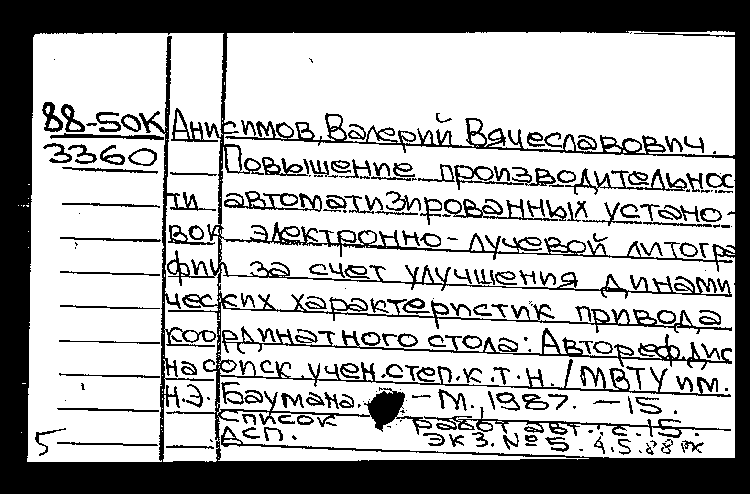 88-50К Анисимов, Валерий Вячеславович.
3360 Повышение производительнос
ти автоматизированных устано-
вок электронно-лучевой литогра
фии за счет улучшения динами
ческих характеристик привода
координатного стола: Автореф. дис
на соиск. учен. степ. к.т.н. / МВТУ им.
Н.Э. Баумана. - М., 1987. - 15.
список работ авт.: с. 15.
ДСП. экз. № 5. 4.5.88
5